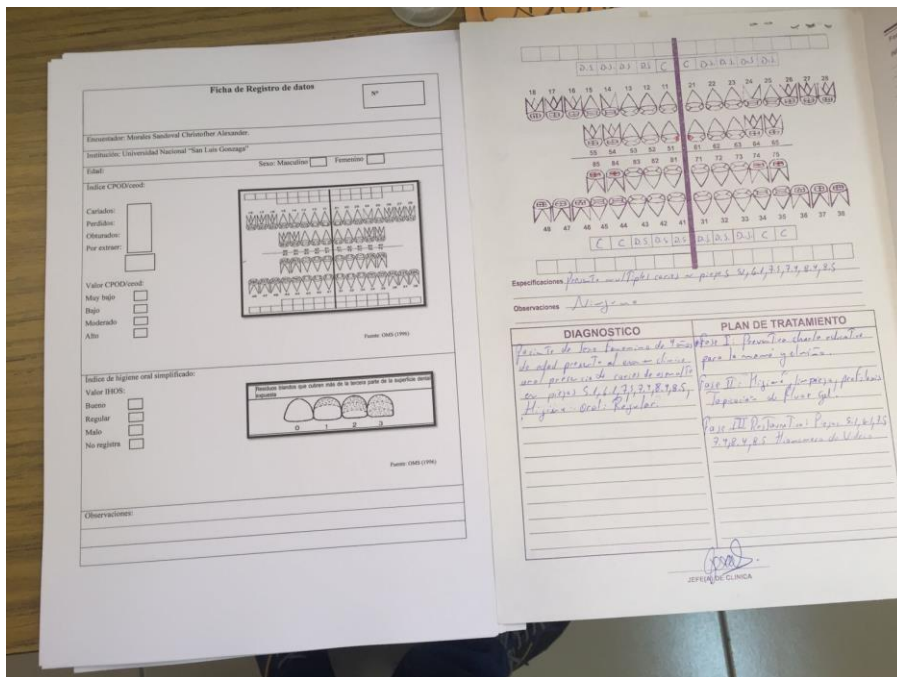 Ficha de Registro de datos
Nº
Encuestador: Morales Sandoval Christofher Alexander.
Institución: Universidad Nacional "San Luis Gonzaga"
Edad:
Sexo: Masculino Femenino
Índice CPOD/ceod:
Cariados:
Perdidos:
Obturados:
Por extraer:
Valor CPOD/ceod:
Muy bajo
Bajo
Moderado
Alto
Fuente: OMS (1996)
Índice de higiene oral simplificado:
Valor IHOS:
Bueno
Regular
Malo
No registra
Residuos blandos que cubren más de la tercera parte de la superficie dental
expuesta
0 1 2 3
Fuente: OMS (1996)
Observaciones:
D.S D.S D.S D.S C C D.S D.S D.S D.S
18 17 16 15 14 13 12 11 21 22 23 24 25 26 27 28
55 54 53 52 51 61 62 63 64 65
85 84 83 82 81 71 72 73 74 75
48 47 46 45 44 43 42 41 31 32 33 34 35 36 37 38
C C D.S D.S D.S D.S D.S D.S C C
Especificaciones Presenta multiples caries en piezas 5.1, 6.1, 7.5, 7.4, 8.4, 8.5
Observaciones Ninguna
DIAGNOSTICO
Paciente de sexo femenino de 9 años
de edad presenta al examen clínico
oral presencia de caries de esmalte
en piezas 5.1, 6.1, 7.5, 7.4, 8.4, 8.5,
Higiene oral: Regular.
PLAN DE TRATAMIENTO
Fase I: Preventiva charla educativa
para la mamá y el niño.
Fase II: Higiene, limpieza, profilaxis
de Fluor Gel.
Fase III Restaurativa: Piezas 5.1, 6.1, 7.5
7.4, 8.4, 8.5 de Vidrio
JEFE(A) DE CLINICA